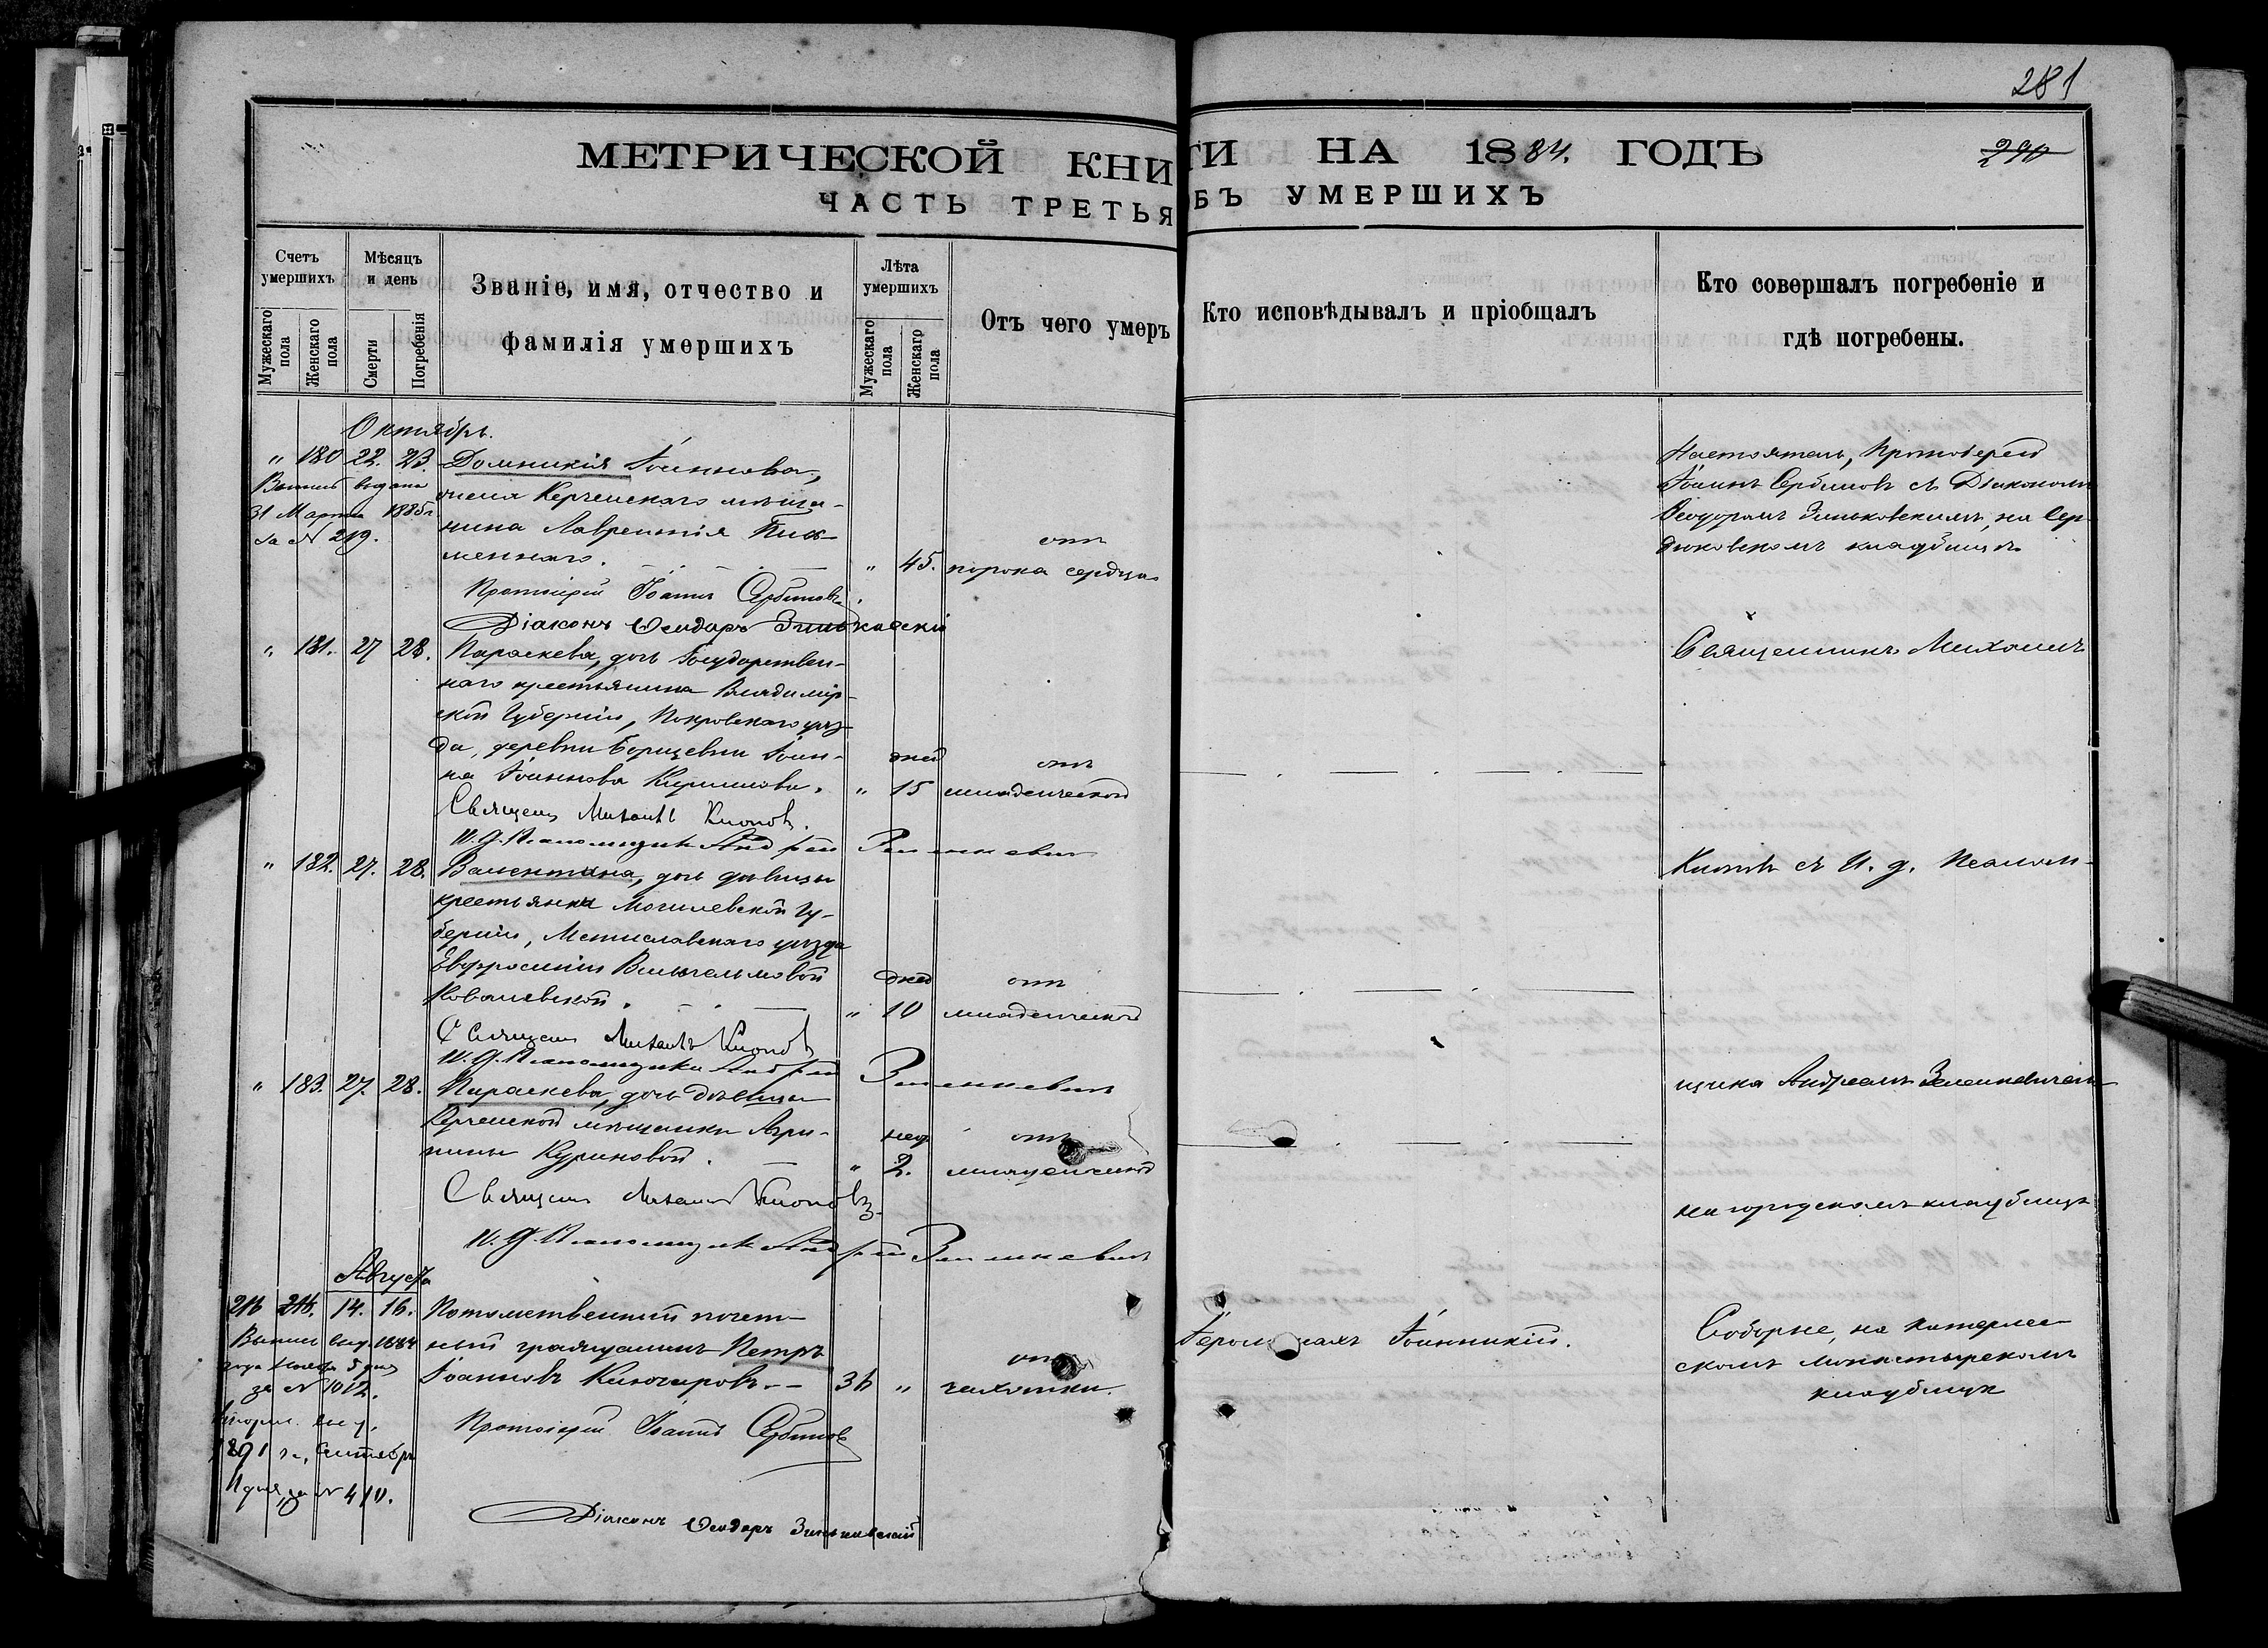 281
МЕТРИЧЕСКОЙ КНИГИ НА 1884. ГОДЪ
290
ЧАСТЬ ТРЕТЬЯ БЪ УМЕРШИХЪ
Счетъ умершихъ
Мужескаго пола
Женскаго пола
Мѣсяцъ и день
Смерти
Погребенія
Званіе, имя, отчество и фамилія умершихъ
Лѣта умершихъ
Мужескаго пола
Женскаго пола
Отъ чего умеръ
Кто исповѣдывалъ и пріобщалъ
Кто совершалъ погребеніе и гдѣ погребены.
Октябрь.
" 180 22. 23. Домникія Іоаннова,
Выпись выдана
31 Марта 1885 г.
за № 219.
жена Керченскаго мѣща-
нина Лаврентія Пись-
меннаго. " 45. отъ порока сердца
Настоятель, Протоіерей
Іоаннъ Сербиновъ съ Діакономъ
Ѳеодоромъ Зиньковскимъ, на Сер-
дюковскомъ кладбищѣ
Протоіерей Іоаннъ Сербиновъ.
Діаконъ Ѳеодоръ Зиньковскій
" 181. 27 28. Параскева, дочь Государствен-
наго крестьянина Владимір-
ской Губерніи, Покровскаго уѣз-
да, деревни Іоан-
на Іоаннова " 15 дней отъ младенческой
Священникъ Михаилъ
Священ. Михаилъ Кноповъ.
И. д. Псаломщика Андрей Зеленкевичъ
" 182. 27. 28. Валентина, дочь дѣвицы
крестьянки Могилевской Гу-
берніи, Мстиславскаго уѣзда
Евфросиніи Вильгельмовой
Ковалевской. " 10 дней отъ младенческой
съ И. д. Псалом-
Священ Михаилъ Кноповъ
И. д. Псаломщика Андрей Зеленкевичъ
" 183. 27. 28. Параскева, дочь дѣвицы
Керченской мѣщанки Агри-
пины Куриновой. " 2. нед. отъ младенческой
щика Андреемъ Зеленкевичемъ
на городскомъ кладбищѣ
Священ Михаилъ Кноповъ
И. д. Псаломщика Андрей Зеленкевичъ
Августа
216 216. 14. 16. Потомственный почет-
ный гражданинъ Петръ
Іоанновъ 36 " отъ чахотки.
Выпись выд. 1884
года 5 дня
за № 1012.
выд.
1891 г., Сентябр
11 дня, за № 410.
Іеромонахъ Іоанникій.
Соборне, на Катерлес-
скомъ монастырскомъ
кладбищѣ
Протоіерей Іоаннъ Сербиновъ
Діаконъ Ѳеодоръ Зиньковскій